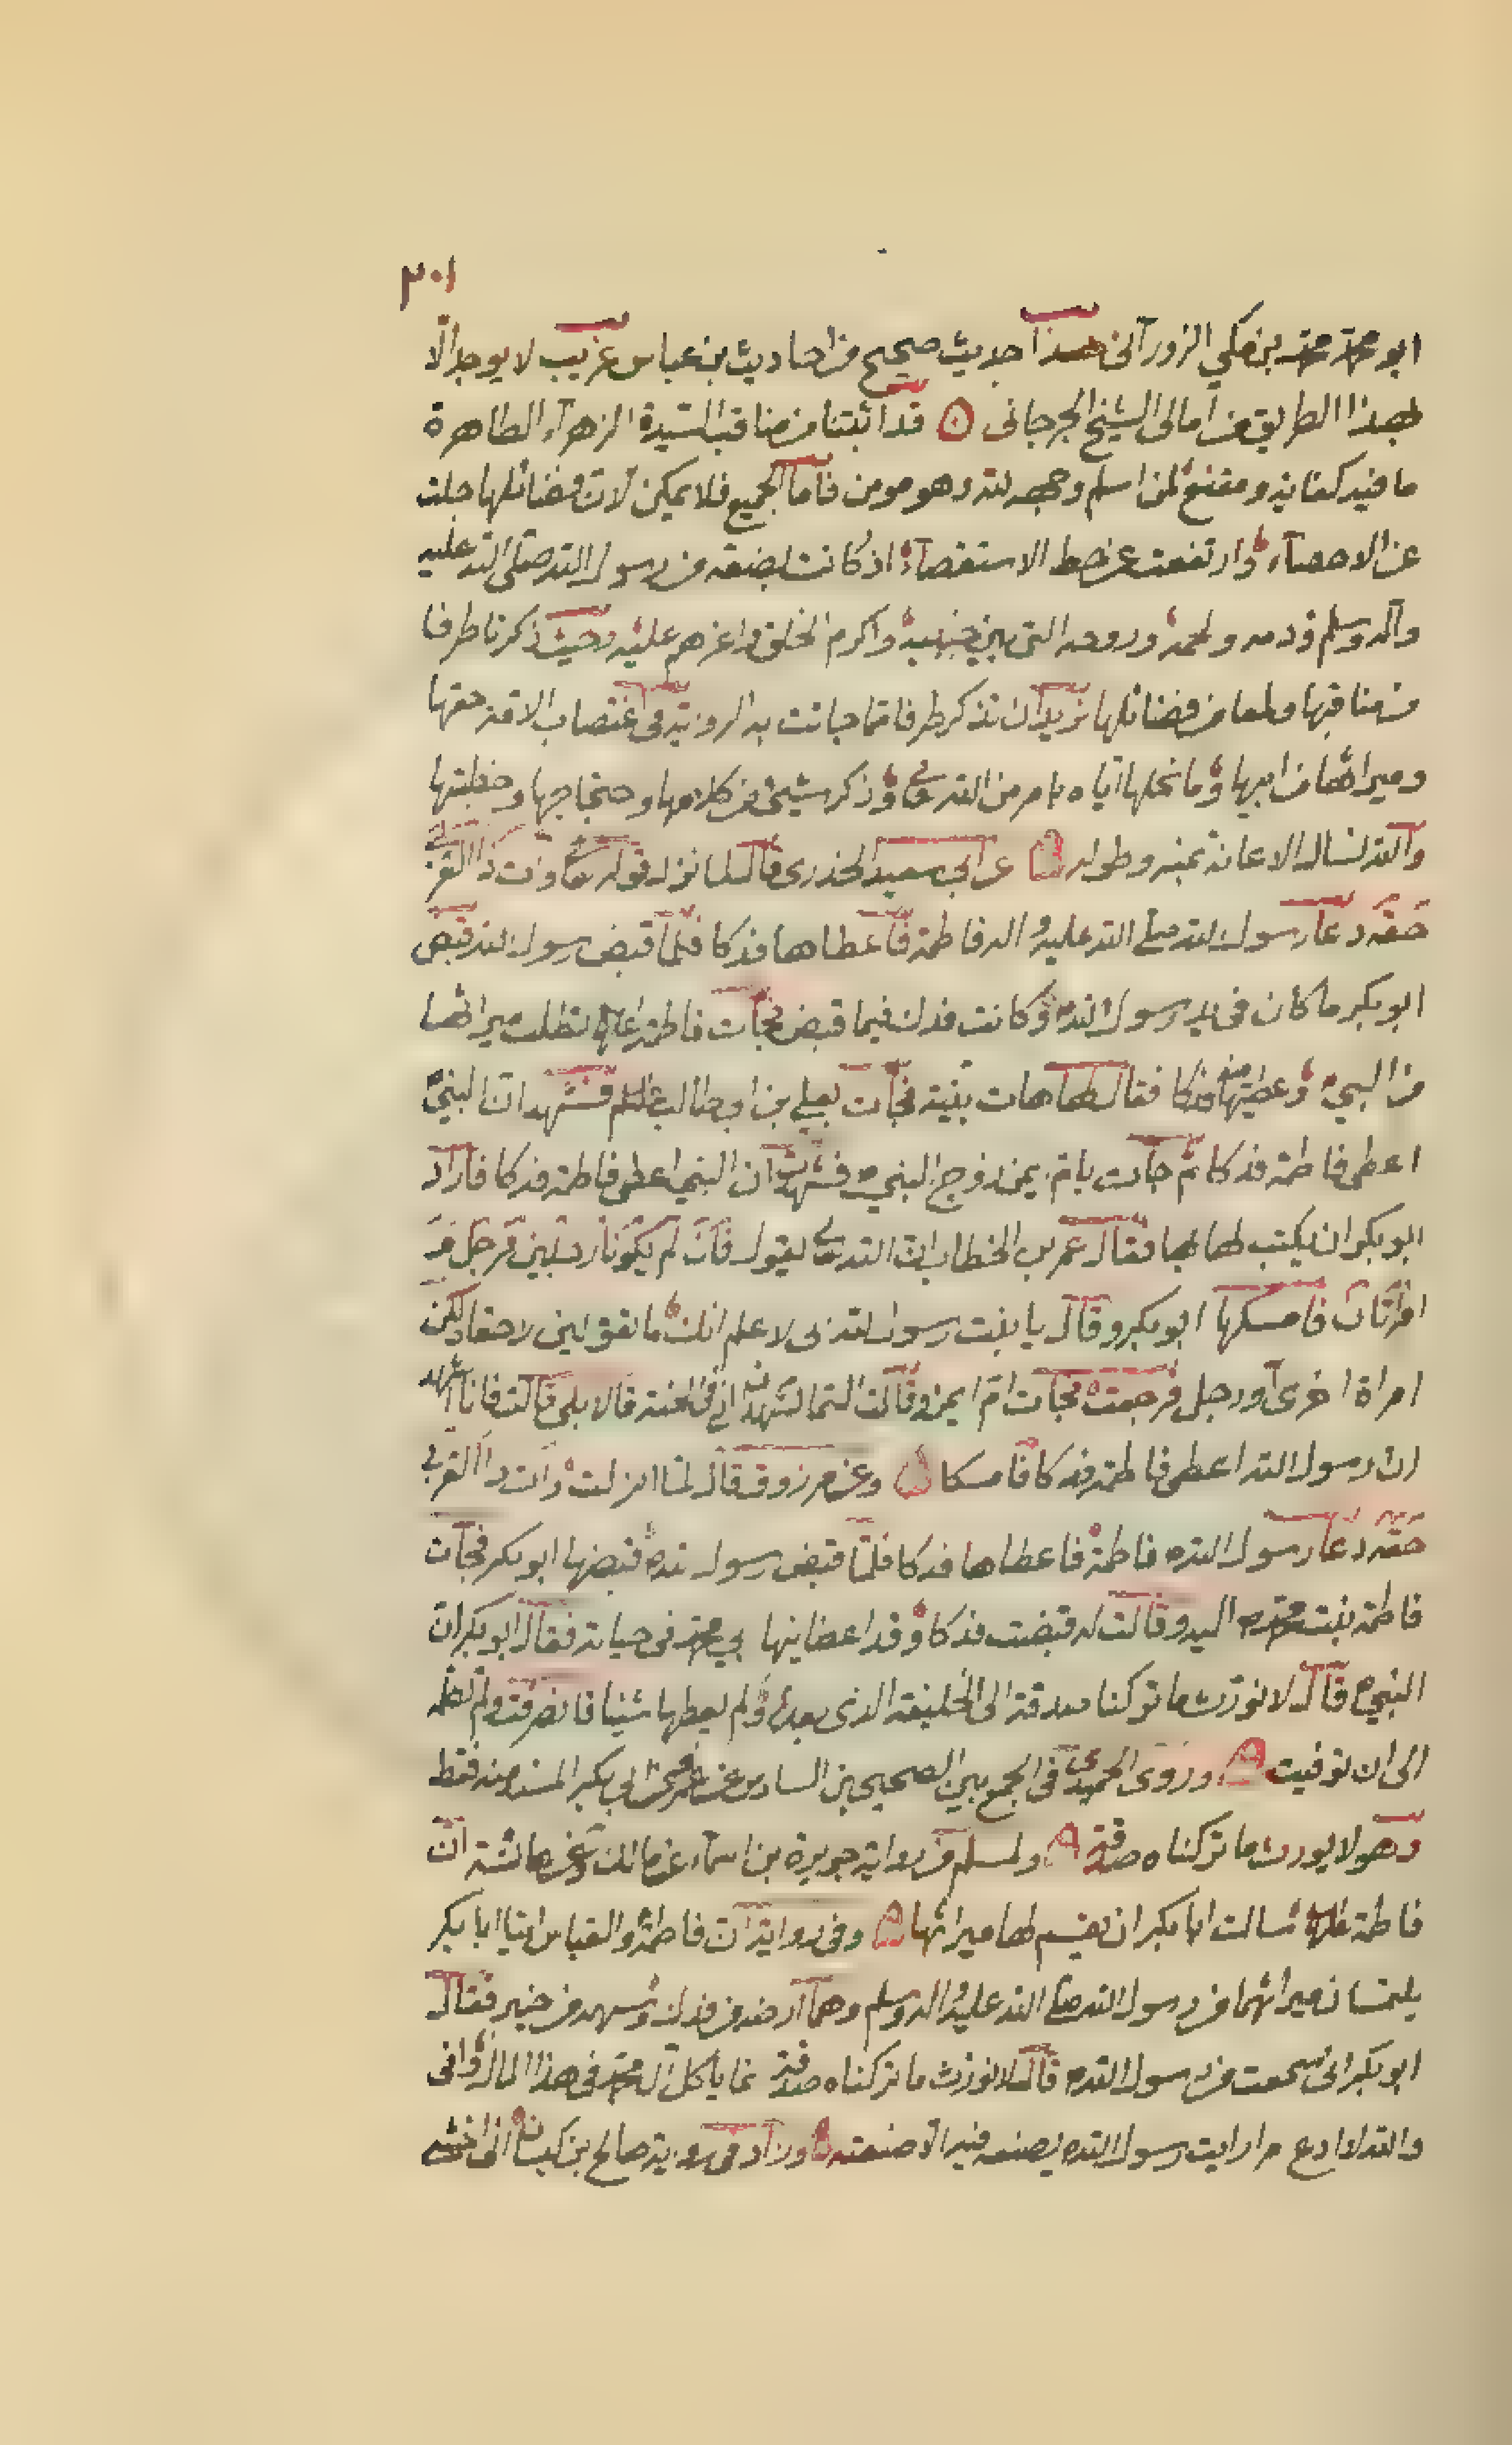 ٢٠١
ابو محمد محمد بن مكي الزورآنى هذا حديث صحيح من احاديث بن عباس غريب لا يوجد الّا
بهذا الطريق من امالى الشيخ الجرجانى قد اثبتنا من مناقب السّيدة الزهرآء الطاهرة
ما فيه كفاية ومقنع لمن اسلم وجهه لله وهو مومن فامّا الجميع فلا يمكن لانّ فضائلها جلت
عن الاحصآء وارتفعت عن ضبط الاستقصآء اذ كانت بضعة من رسول الله صلى الله عليه
وآله وسلم ودمه ولحمه وروحه التى بين جنبيه واكرم الخلق واعزهم عليه وحيث ذكرنا طرفا
من مناقبها ولمعا من فضائلها نريد ان نذكر طرفا مما جائت به الرواية فى اغتصاب الامة حقها
وميراثها من ابيها وما نحلها اياه بامر من الله تعالى وذكر شيئ من كلامها واحتجاجها وخطبتها
والله نسال الاعانة بمنه وطوله عن ابى سعيد الخدرى قال لما نزل قوله تعالى وآت ذا القربى
حقه دعا رسول الله صلى الله عليه واله فاطمة فاعطاها فدكا فلمّا قبض رسول الله قبض
ابو بكر ما كان فى يد رسول الله وكانت فدك فيما قبض فجآت فاطمة عليها تطلب ميراثها
من النبي وعطيتها منه فدكا فقال لها هات بيّنة فجآت بعلي بن ابى طالب فشهد انّ النبيّ
اعطى فاطمة فدكا ثم جآت بام ايمن زوج النبي فشهدت ان النبي اعطى فاطمة فدكا فاراد
ابو بكر ان يكتب لها بها فقال عمر بن الخطاب انّ الله تعالى يقول فان لم يكونا رجلين فرجل و
امراتان فامسكها ابو بكر وقال يا بنت رسول الله انى لاعلم انك ما تقولين الا حقا ولكن
امراة اخرى او رجل فرجعت فجآت امّ ايمن وقالت الستما تشهدان انى فى الجنة قالا بلى قالت فانا اشهد
ان رسول الله اعطى فاطمة فدكا فامسكا وعن مرزوق قال لمّا انزلت وآت ذا القربى
حقه دعا رسول الله فاطمة فاعطاها فدكا فلمّا قبض رسول الله قبضها ابو بكر فجآت
فاطمة بنت محمد اليه وقالت له قبضت فدكا وقد اعطانيها ابي محمد فى حياته فقال ابو بكر ان
النبي قال لا نورّث ما تركنا صدقة الى الخليفة الذى بعدى ولم يعطها شيئا فانصرفت ولم تكلّمه
الى ان توفيت وروى الحميدى فى الجمع بين الصحيحين السادس عن عمر عن ابي بكر المسند منه فقط
وهو لا يورث ما تركناه صدقة ولمسلم من رواية جويرية بن اسمآء عن مالك وعن عائشة انّ
فاطمة عليها سالت ابا بكر ان يقسم لها ميراثها وفى رواية انّ فاطمة والعباس اتيا ابا بكر
يلتمسان ميراثهما من رسول الله صلى الله عليه واله وسلم وهما ارضه من فدك وسهمه من خيبر فقال
ابو بكر انى سمعت من رسول الله قال لا نورّث ما تركناه صدقة انما ياكل آل محمد فى هذا المال وانى
والله لا ادع امرا رايت رسول الله يصنعه فيه الّا صنعته وزاد فى رواية صالح بن كيسان انى اخشى